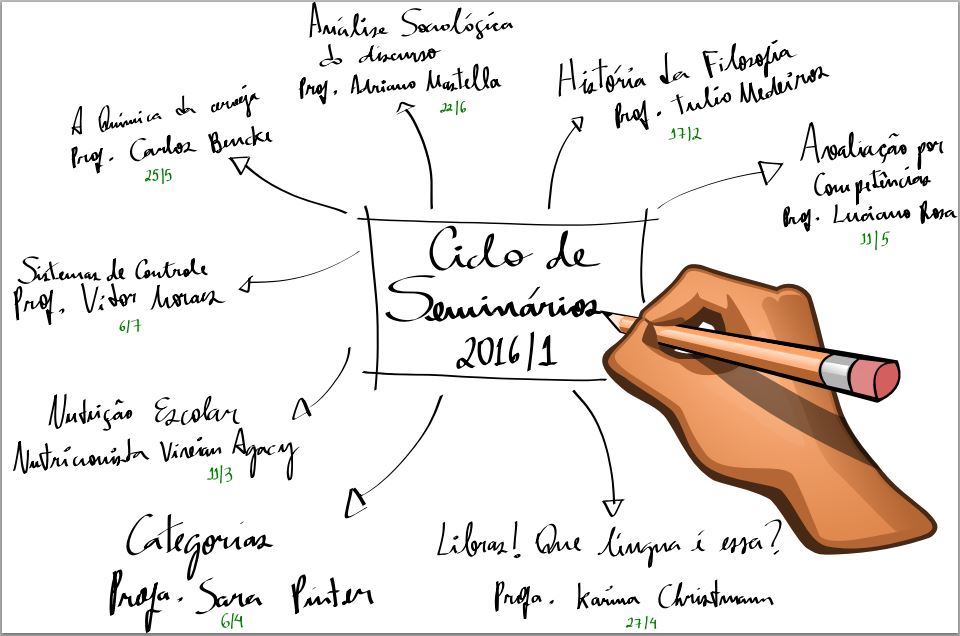 Análise Sociológica
do discurso
Prof. Adriano Mastella
22/6
História da Filosofia
Prof. Tulio Medeiros
17/2
A Química da cerveja
Prof. Carlos Bencke
25/5
Avaliação por
Competências
Prof. Luciano Rosa
11/5
Ciclo de
Seminários
2016/1
Sistemas de Controle
Prof. Vitor Moraes
6/7
Nutrição Escolar
Nutricionista Vivian Agacy
11/3
Categorias
Profa. Sara Pinter
6/4
Libras! Que língua é essa?
Profa. Karina Christmann
27/4